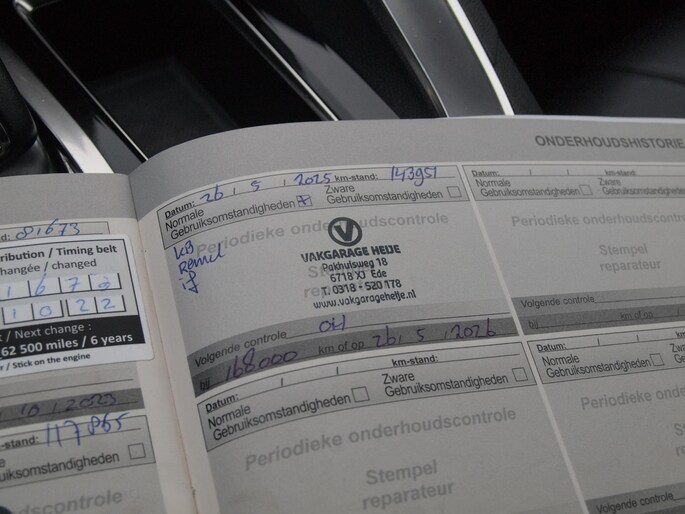 d: 81673
ribution / Timing belt
changée / changed
1 6 7 8
1 0 2 2
t / Next change :
62 500 miles / 6 years
r / Stick on the engine
10 / 2023
-stand: 117865
sstandigheden
oudscontrole
ONDERHOUDSHISTORIE
Datum: 26 / 5 / 2025 km-stand: 143951
Normale Gebruiksomstandigheden Zware Gebruiksomstandigheden
Periodieke onderhoudscontrole
Stempel reparateur
VAKGARAGE HEIJE
Pakhuisweg 18
6718 XJ Ede
T. 0318 - 520 178
www.vakgarageheije.nl
Volgende controle oil
bij 168000 km of op 26 / 5 / 2026
Datum: / / km-stand:
Normale Gebruiksomstandigheden Zware Gebruiksomstandigheden
Periodieke onderhoudscontrole
Stempel
reparateur
Datum: / / km-stand:
Normale Gebruiksomstandigheden Zware Gebruiksomstandigheden
Periodieke onderhoudscontrole
Stempel
reparateur
Volgende controle
bij km of op
Datum: / / km-stand:
Normale Gebruiksomstandigheden Zware Gebruiksomstandigheden
Periodieke onderhoudscontrole
Stempel
reparateur
Volgende controle